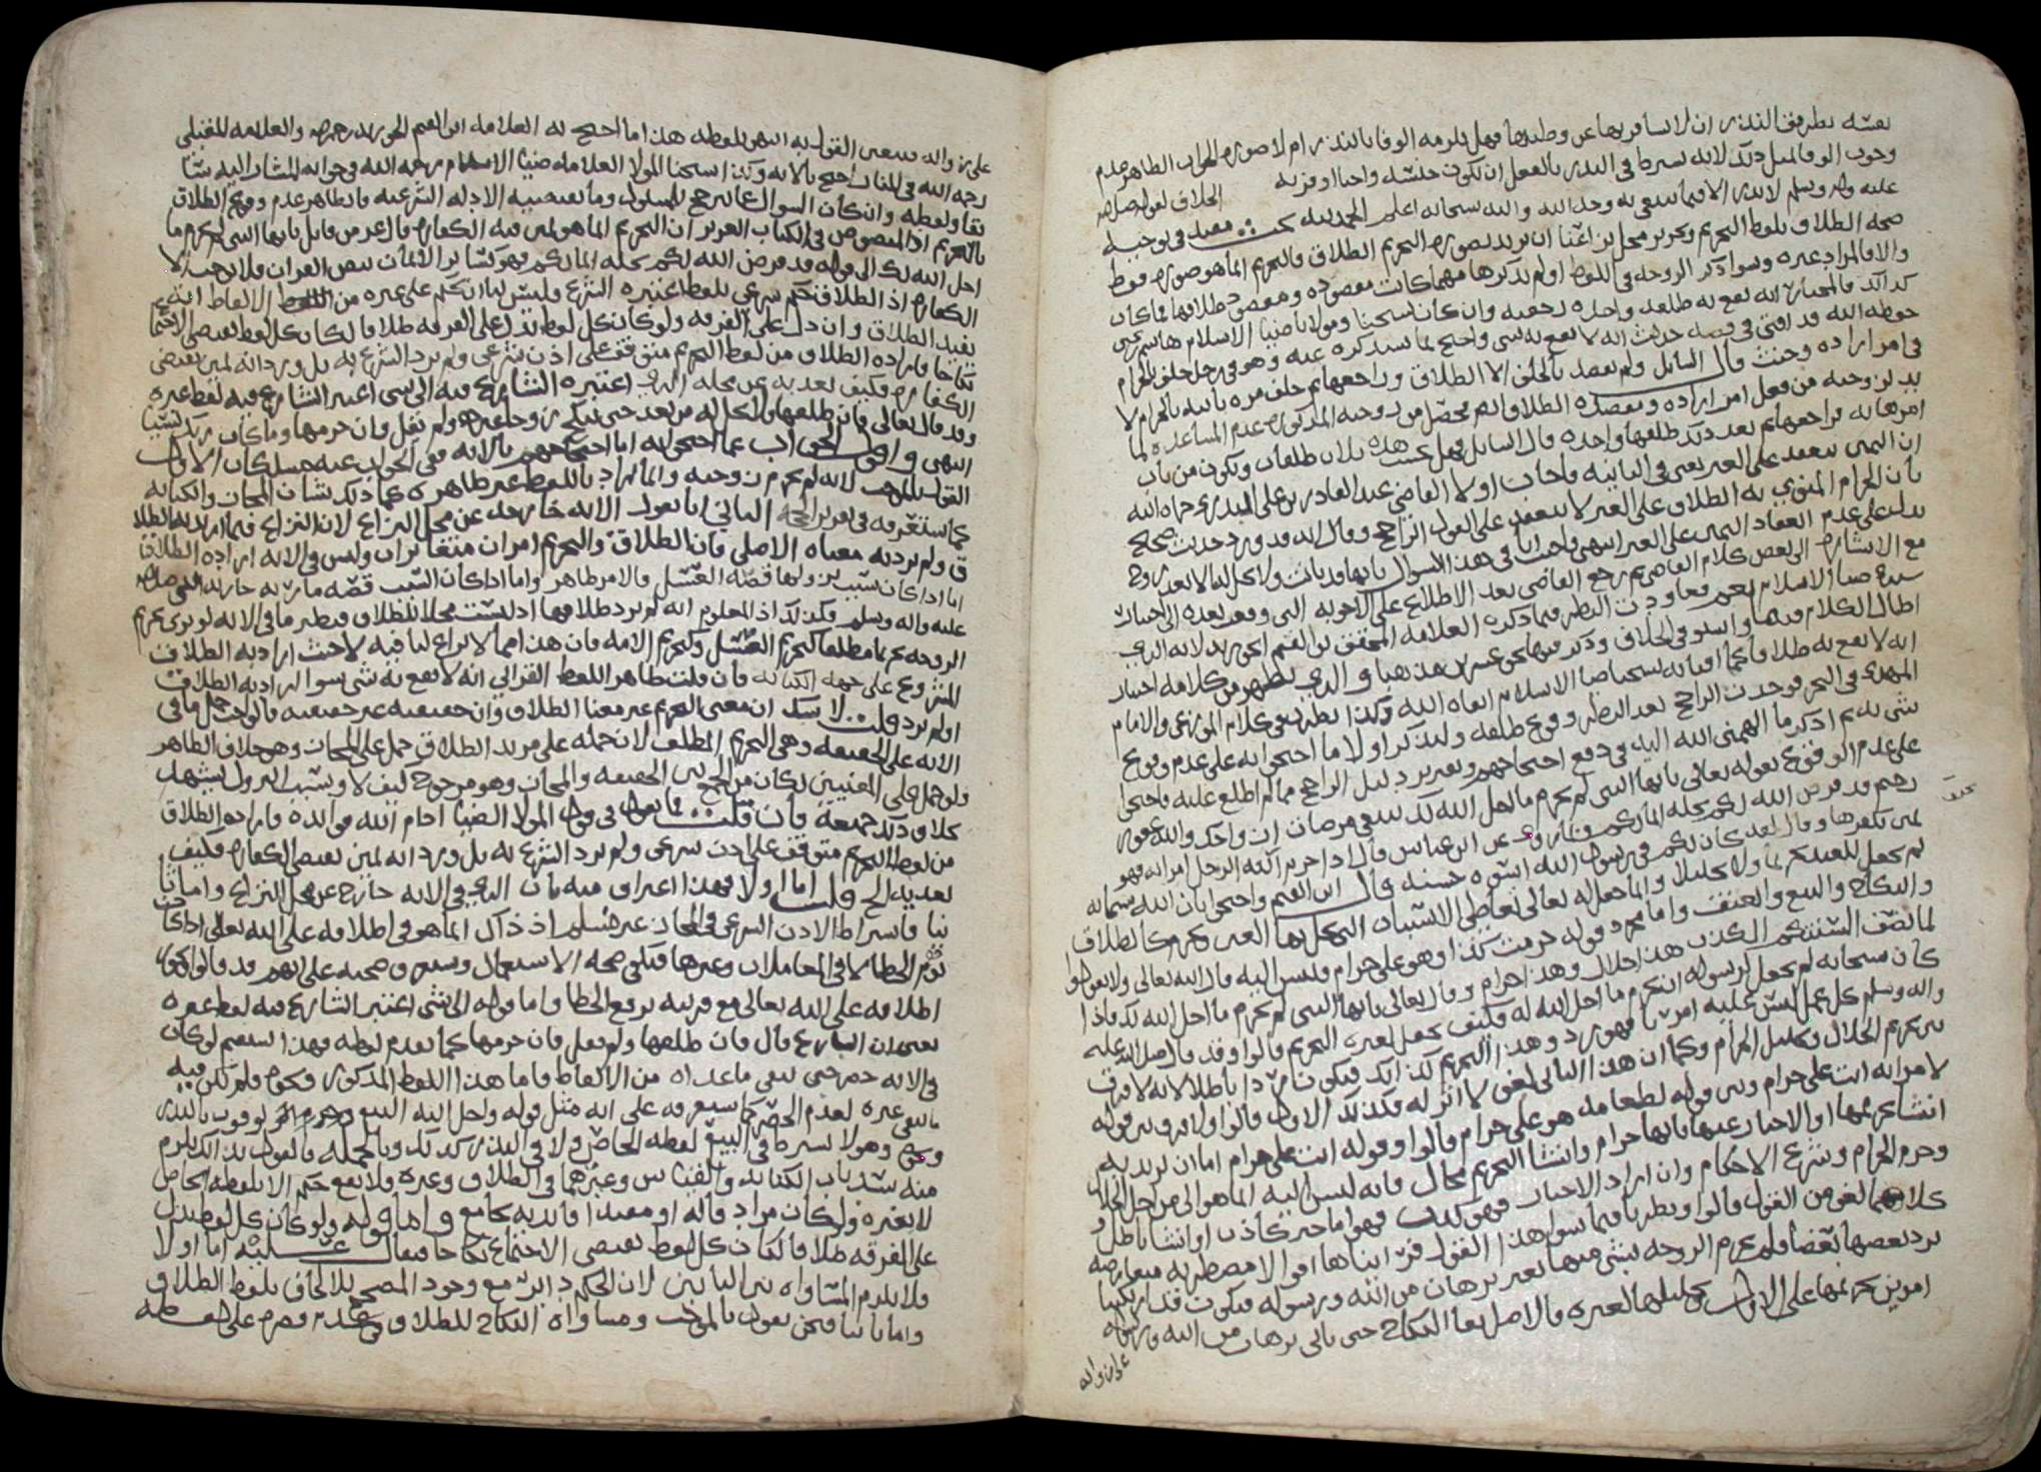 نفسه بطريق النذر ان لا يسافر بها عن وطنها فهل يلزمه الوفا بالنذر ام لا صوره الجواب الظاهر عدم
وجوب الوفا لمثل ذلك لانه يشترط في النذر بالفعل ان يكون جنسه واجبا او قربه
عليه واله وسلم لا نذر الا فيما يبتغى به وجه الله والله سبحانه اعلم الحمد لله بحث مفيد في توجيه
صحه الطلاق بلفظ التحريم وتحرير محل نزاعنا ان يريد بصوره التحريم الطلاق فالتحريم انما هو صوره فقط
والا فالمراد غيره وسوا ذكر الزوجه في اللفظ او لم يذكرها مهما كانت مقصوده ومقصود طلاقها فما كان
كذلك فالمختار انه يقع به طلقه واحده رجعيه وان كان شيخنا ومولانا ضيا الاسلام هاشم بن يحيى
حفظه الله قد افتى في قصه حديث انه لا يقع به شي واحتج بما سنذكره عنه وهو في رجل حلف بالحرام
في امر اراده وحنث قال السائل ولم يقصد بالحلف الا الطلاق وراجعها ثم حلف مره ثانيه بالحرام لا
بد لزوجته من فعل امر اراده ومقصده الطلاق ولم يحصل من زوجته المذكوره عدم المساعده لما
امرها به فراجعها ثم بعد ذلك طلقها واحده قال السائل فهل تحسب هذه ثلاث طلقات ويكون من باب
ان اليمين تنعقد على الغير يعني في الثانيه فاجاب اولا القاضي عبد القادر بن علي البدري حماه الله
بان الحرام المنوي به الطلاق على الغير لا ينعقد على القول الراجح وقال انه قد ورد حديث صحيح
يدل على عدم انعقاد اليمين على الغير انتهى واجاب في هذا السوال بانها قد بانت ولا تحل له الا بعد زوج
مع الاشاره الى بعض كلام القاضي ثم رجع القاضي بعد الاطلاع على الاجوبه التي وقعت بعده الى اختيار
اطال الكلام فيها واستوفى الخلاف وذكر فيها نحو عشرين مذهبا والذي يظهر من كلامه اختيار
انه لا يقع به طلاقا كما افتا به شيخنا ضيا الاسلام ابقاه الله وكذا يظهر من كلام الموزعي والامام
المهدي في البحر فوجدت الراجح بعد النظر وقوع طلقه ولنذكر اولا ما احتجوا به على عدم وقوع
شي به ثم اذكر ما الهمني الله اليه في دفع احتجاجهم وتقرير دليل الراجح مما لم اطلع عليه فاحتجوا
على عدم الوقوع بقوله تعالى يا ايها النبي لم تحرم ما احل الله لك تبتغي مرضات ازواجك والله غفور
رحيم قد فرض الله لكم تحله ايمانكم وبما روي عن ابن عباس قال اذا حرم الرجل امراته فهو
يمين يكفرها وقال لقد كان لكم في رسول الله اسوه حسنه قال ابن القيم واحتجوا بان الله سبحانه
لم يجعل للعبد تحريما ولا تحليلا وانما جعل له تعالى تعاطي الاسباب التي يحل بها العين وتحرم كالطلاق
والنكاح والبيع والعتق واما مجرد قوله حرمت كذا وهو علي حرام فليس اليه قال الله تعالى ولا تقولوا
لما تصف السنتكم الكذب هذا حلال وهذا حرام وقال تعالى يا ايها النبي لم تحرم ما احل الله لك فاذا
كان سبحانه لم يجعل لرسوله ان يحرم ما احل الله له فكيف يجعل لغيره التحريم قالوا وقد قال صلى الله عليه
واله وسلم كل عمل ليس عليه امرنا فهو رد وهذا التحريم كذلك فيكون ردا باطلا لانه لا فرق
بين تحريم الحلال وتحليل الحرام وكما ان هذا الثاني لغو لا اثر له فكذلك الاول قالوا ولا فرق بين قوله
لامراته انت علي حرام وبين قوله لطعامه هو علي حرام قالوا وقوله انت علي حرام اما ان يريد به
انشا تحريمها او الاخبار عنها بانها حرام وانشا التحريم محال فانه ليس اليه انما هو الى من احل الحلال
وحرم الحرام وشرع الاحكام وان اراد الاخبار فهو كذب فهو اما خبر كاذب او انشا باطل و
كلاهما لغو من القول قالوا ونظرنا فيما سوا هذا القول فرايناها اقوالا مضطربه متعارضه
يرد بعضها بعضا فلم نحرم الزوجه بشي منها بغير برهان من الله ورسوله فيكون قد ارتكبنا
امرين تحريمها على الاول وتحليلها لغيره والاصل بقا النكاح حتى ياتي برهان من الله ورسوله
على زواله
على زواله فيتعين القول به انتهى بلفظه هذا ما احتج به العلامه ابن القيم الجوزيه رحمه الله والعلامه المقبلي
رحمه الله في المنار احتج بالايه وكذا شيخنا المولا العلامه ضيا الاسلام رحمه الله في جوابه المشار اليه سابقا
ولفظه وان كان السوال عما يرجح المسئول وما تقتضيه الادله الشرعيه فالظاهر عدم وقوع الطلاق
بالتحريم اذ المنصوص في الكتاب العزيز ان التحريم انما هو يمين فيه الكفاره قال عز من قائل يا ايها النبي لم تحرم ما
احل الله لك الى قوله قد فرض الله لكم تحله ايمانكم فهو كسائر الايمان بنص القران فلا يوجب الا
الكفاره اذ الطلاق حكم شرعي بلفظ اعتبره الشرع وليس لنا ان نحكم على غيره من الالفاظ انه
يفيد الطلاق وان دل على الفرقه ولو كان كل لفظ يدل على الفرقه طلاقا لكان كل لفظ يقتضي الاجتماع
نكاحا فاراده الطلاق من لفظ التحريم متوقف على اذن شرعي ولم يرد الشرع به بل ورد انه يمين يقتضي
الكفاره فكيف نعديه عن محله الذي اعتبره الشارع فيه الى شي اعتبر الشارع فيه لفظ غيره
وقد قال تعالى فان طلقها فلا تحل له من بعد حتى تنكح زوجا غيره ولم يقل وان حرمها وما كان ربك نسيا
انتهى واقول الجواب عما احتجوا به اما احتجاجهم بالايه ففي الجواب عنه مسلكان الاول
القول بالموجب لانه لم يحرم زوجته وانما اراد باللفظ غير ظاهره كما ذلك شان المجاز والكنايه
كما ستعرفه في تقرير الحجه الثاني انا نقول الايه خارجه عن محل النزاع لان النزاع فيما اراد به الطلاق
ولم يرد به معناه الاصلي فان الطلاق والتحريم امران متغايران وليس في الايه اراده الطلاق
اما اذا كان سبب نزولها قصه العسل فالامر ظاهر واما اذا كان السبب قصه ماريه جاريه النبي صلى الله
عليه واله وسلم فكذلك اذ المعلوم انه لم يرد طلاقها اذ ليست محلا للطلاق فنظير ما في الايه لو نوى تحريم
الزوجه تحريما مطلقا كتحريم العسل وتحريم الامه فان هذا مما لا نزاع لنا فيه لا حيث اراد به الطلاق
المشروع على جهه الكنايه فان قلت ظاهر اللفظ القراني انه لا يقع به شي سوا اراد به الطلاق
او لم يرد قلت لا شك ان معنى التحريم غير معنا الطلاق وان حقيقته غير حقيقته فالواجب حمل ما في
الايه على الحقيقه وهي التحريم المطلق لان حمله على مريد الطلاق حمل على المجاز وهو خلاف الظاهر
ولو حمل على المعنيين لكان من الجمع بين الحقيقه والمجاز وهو مرجوح كيف لا وسبب النزول يشهد
بخلاف ذلك جميعه فان قلت فما تقول في قول المولا الضيا ادام الله فوائده فاراده الطلاق
من لفظ التحريم متوقف على اذن شرعي ولم يرد الشرع به بل ورد انه يمين يقتضي الكفاره فكيف
نعديه الخ قلت اما اولا فهذا اعتراف منه بان الذي في الايه خارج عن محل النزاع واما ثانيا
فاشتراط الاذن الشرعي في المجاز غير مسلم اذ ذاك انما هو في اطلاقه على الله تعالى اذا كان
توهم الخطا لا في المعاملات وغيرها فيكفي صحه الاستعمال
اطلاقه على الله تعالى مع قرينه ترفع الخطا واما قوله الى شي اعتبر الشارع فيه لفظ غيره
يعني ان الشارع قال فان طلقها ولم يقل فان حرمها كما تقدم لفظه فهذا يستقيم لو كان
في الايه حصر حتى ينفي ما عداه من الالفاظ فاما هذا اللفظ المذكور ونحوه فلم يكن فيه
ما ينفي غيره لعدم الحصر كما سيعرفه على انه مثل قوله واحل الله البيع وحرم الربو يوفون بالنذر
ونحوه وهو لا يشترط في البيع لفظه الخاص ولا في النذر كذلك وبالجمله فالقول بذلك يلزم
منه سد باب الكنايه والقياس وغيرهما في الطلاق وغيره ولا يقع حكم الا بلفظه الخاص
لا بغيره ولو كان مراد قائله او مفيدا فائدته بجامع واما قوله ولو كان كل لفظ يدل
على الفرقه طلاقا لكان كل لفظ يقتضي الاجتماع نكاحا فيقال عليه اما اولا
فلا يلزم المساواه بين البابين لان الحكم دائر مع وجود المصحح للالحاق بلفظ الطلاق
واما ثانيا فنحن نقول بالموجب ومساواه النكاح للطلاق